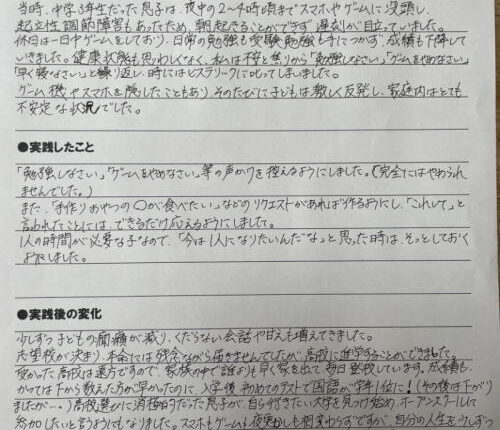 当時、中学3年生だった息子は、夜中の2〜4時頃までスマホやゲームに没頭し、
起立性調節障害もあったため、朝起きることができず遅刻が目立っていました。
休日は一日中ゲームをしており、日常の勉強も受験勉強も手につかず、成績も下降して
いきました。健康状態も思わしくなく、私は不安と焦りから「勉強しなさい」「ゲームをやめなさい」
「早く寝なさい」と繰り返し、時にはヒステリックに叱ってしまいました。
ゲーム機やスマホを隠したこともあり、そのたびに子どもは激しく反発し、家庭内はとても
不安定な状況でした。
●実践したこと
「勉強しなさい」「ゲームをやめなさい」等の声かけを控えるようにしました。(完全にはやめられ
ませんでした。)
また、「手作りおやつの〇〇が食べたい」などのリクエストがあれば作るようにし、「これして」と
言われたことには、できるだけ応えるようにしました。
1人の時間が必要な子なので、「今は1人になりたいんだな」と思った時は、そっとしておく
ようにしました。
●実践後の変化
少しずつ子どもの癇癪が減り、くだらない会話や甘えも増えてきました。
志望校が決まり、本命には残念ながら届きませんでしたが、高校に進学することができました。
受かった高校は遠方ですので、家族の中で誰よりも早く家を出て、毎日登校しています。成績も、
かつては下から数えた方が早かったのに、入学後初めてのテストで国語が学年1位に!(その後は下がり
ましたが…。)高校選びに消極的だった息子が、自ら行きたい大学を見つけ始め、オープンスクールに
参加したいと言うようにもなりました。スマホもゲームも夜更かしも相変わらずですが、自分の人生を少しずつ